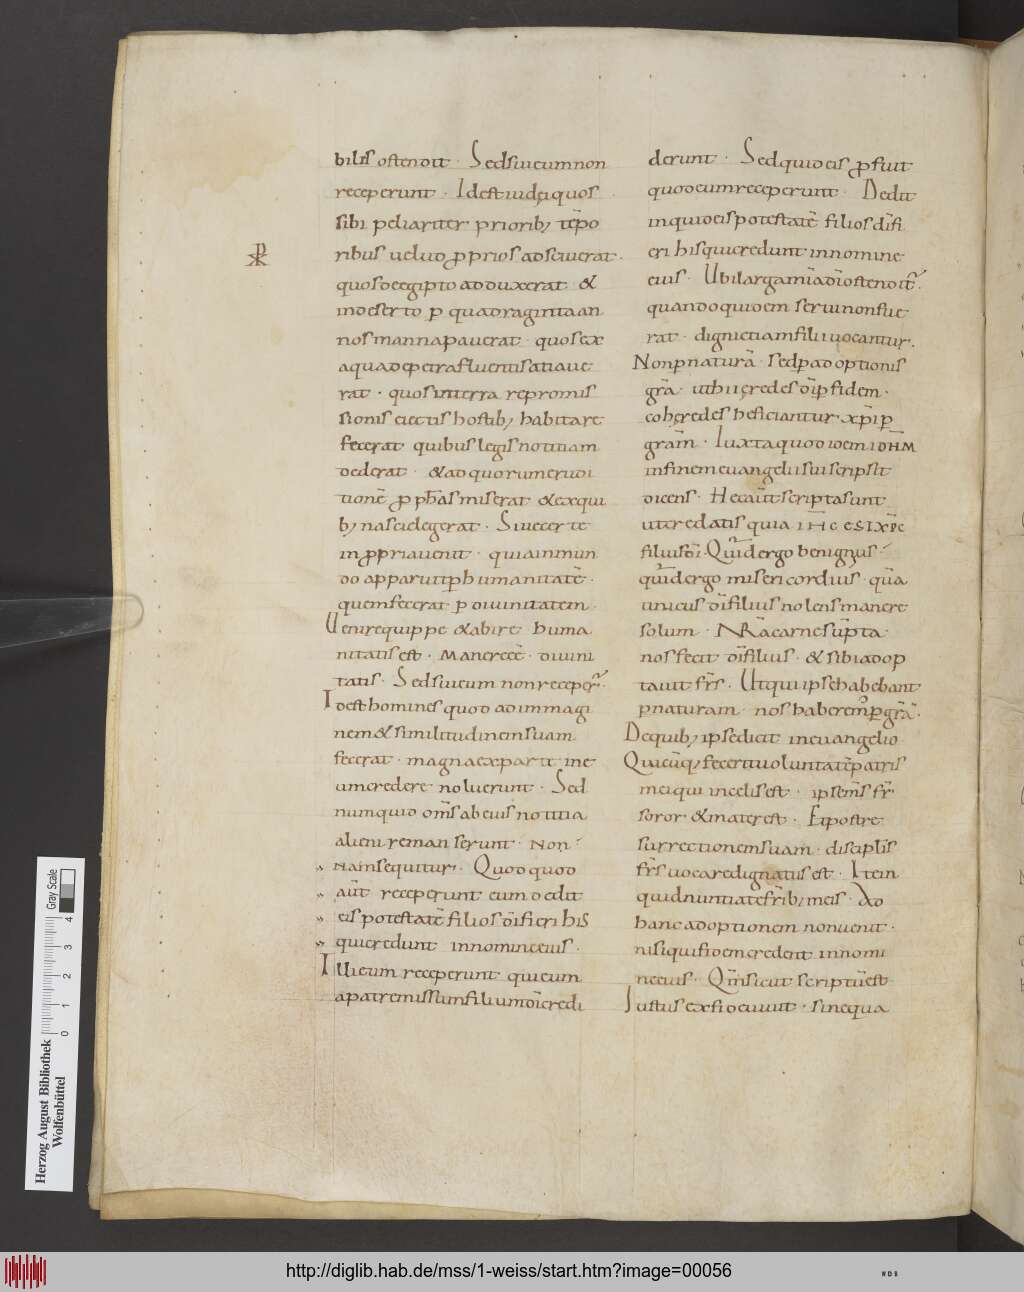 bilis ostendit · Sed si eum non
receperunt · Id est iudęi quos
sibi peliariter priorib; tēpo
ribus velud proprios adsciverat ·
quos de egipto adduxerat &
in deserto p quadraginta an
nos manna paverat · quos ex
aqua de petra fluenti satiave
rat · quos in terra repromis
sionis eiectis hostib; habitare
fecerat quibus legis notitiam
dederat · & ad quorum erudi
tionē pphas miserat & ex qui
b; nasci elegerat · Sive certe
in propria venit · quia in mun
do apparuit p humanitatē ·
quem fecerat p divinitatem ·
Venire quippe & abire huma
nitatis est · Manere ēē · divini
tatis · Sed si eum non receper̄ ·
Id est homines quod ad immagi
nem & similitudinem suam
fecerat · magna ex parte in e
um credere noluerunt · Sed
numquid om̄s ab eius notitia
alieni remanserunt · Non ·
Nam sequitur · Quodquod
aūt receperunt eum dedit
eis potestatē filios dī fieri his
qui credunt in nomine eius ·
Illi eum receperunt qui eum
a patre missum filium dī credi
derunt · Sed quid eis profuit
quod eum receperunt · Dedit
inquid eis potestatē filios dī fi
eri his qui credunt in nomine
eius · Ubi larga m̄ia dī ostendit̄ ·
quando quidem servi non fue
rat · digni etiam filii vocantur ·
Non p naturā · sed p adoptionis
grā · ut hi ięredes dī p fidem ·
cohęredes efficiantur xpi p
grām · Iuxta quod idem IOHM
in finem euangelii sui scripsit
dicens · Hec aūt scripta sunt
ut credatis quia IHC EST XPC
filius dī · Quid ergo benignus ·
quid ergo misericordius · quā
unicus dī filius nolens manere
solum · Nrā carne sūpta
nos fecit dī filius · & sibi adop
tavit frs · Ut qui ipse habebant
p naturam · nos haberem; p grā ·
De quib; ipse dicit in euangelio
Quicūq; fecerit voluntatē patris
mei qui in celis est · ipse m̄s fr
soror & mater est · Et post re
surrectionem suam · disciplis
frs vocare dignatus est · Item
quid nuntiate frib; meis · Ad
hanc adoptionem non venit ·
nisi qui fidem credent in nomi
ne eius · Qm̄ sicut scriptū est
Iustus ex fide vivit · sine qua
Herzog August Bibliothek
Wolfenbüttel
Gray Scale
0 1 2 3 4
http://diglib.hab.de/mss/1-weiss/start.htm?image=00056